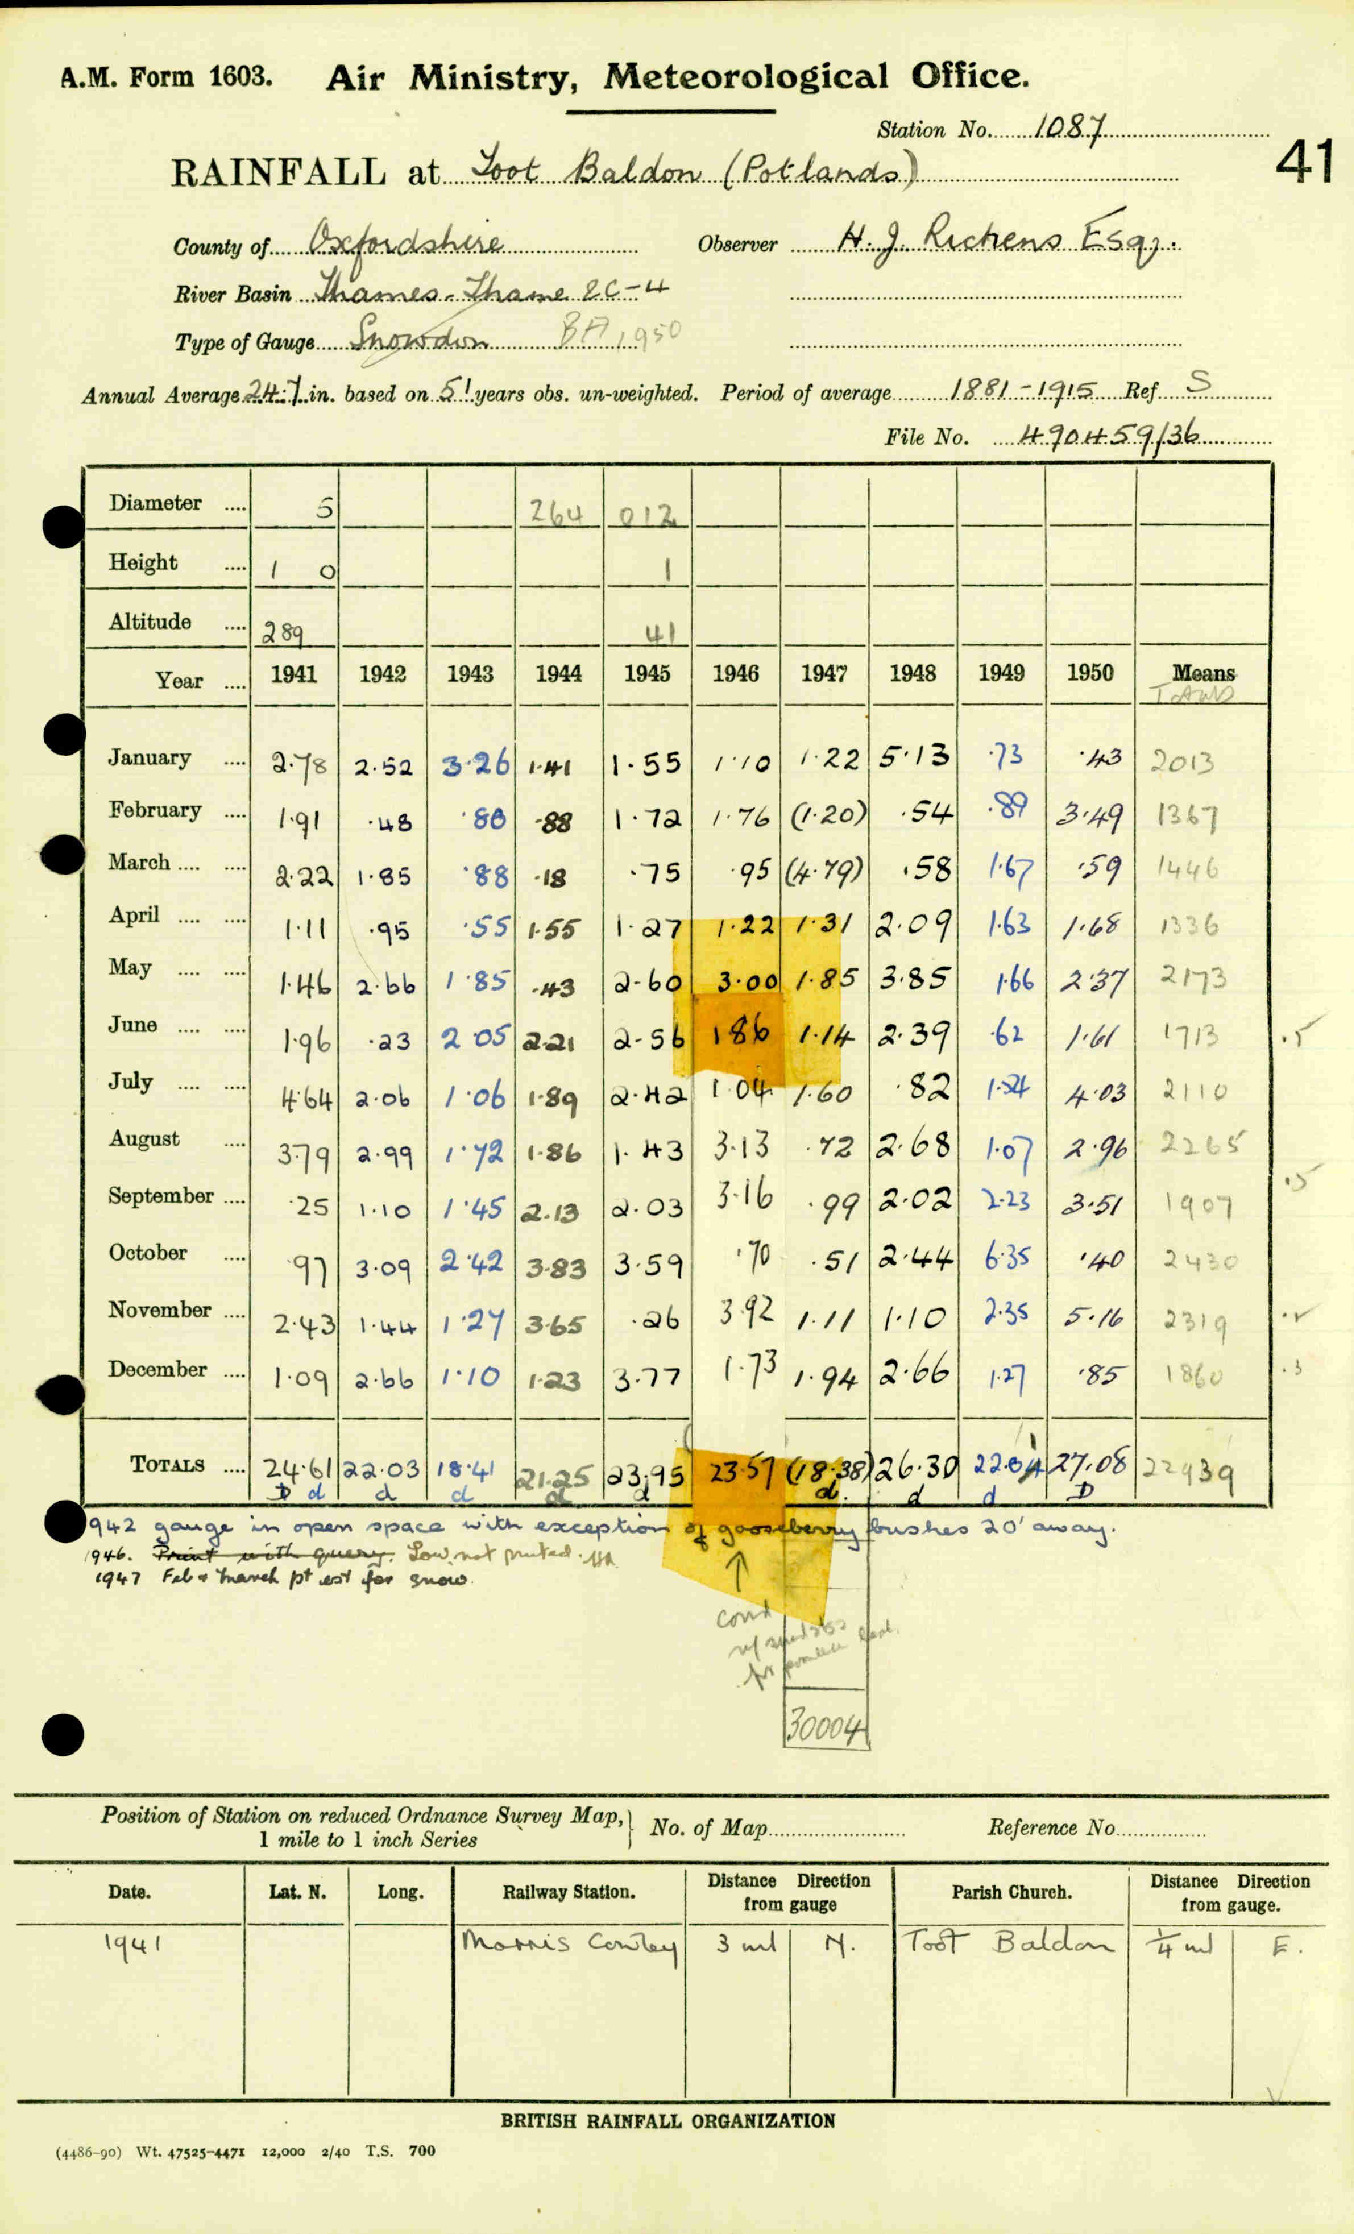 A.M. Form 1603. Air Ministry, Meteorological Office.
Station No. 1087
41
RAINFALL at Toot Baldon (Potlands)
County of Oxfordshire Observer H. J. Rickens Esqr.
River Basin Thames-Thame 2C-4
Type of Gauge Snowdon BA 1950
Annual Average 24.7 in. based on 51 years obs. un-weighted. Period of average 1881-1915 Ref S
File No. 490459/36
Diameter .... 5 264 012
Height .... 1 0 1
Altitude .... 289 41
Year .... 1941 1942 1943 1944 1945 1946 1947 1948 1949 1950 Means
Totals
January .... 2.78 2.52 3.26 1.41 1.55 1.10 1.22 5.13 .73 .43 2013
February .... 1.91 .48 .80 .88 1.72 1.76 (1.20) .54 .89 3.49 1367
March .... .... 2.22 1.85 .88 .18 .75 .95 (4.79) .58 1.67 .59 1446
April .... .... 1.11 .95 .55 1.55 1.27 1.22 1.31 2.09 1.63 1.68 1336
May .... .... 1.46 2.66 1.85 .43 2.60 3.00 1.85 3.85 1.66 2.37 2173
June .... .... 1.96 .23 2.05 2.21 2.56 1.86 1.14 2.39 .62 1.61 1713 .5
July .... .... 4.64 2.06 1.06 1.89 2.42 1.04 1.60 .82 1.54 4.03 2110
August .... 3.79 2.99 1.72 1.86 1.43 3.13 .72 2.68 1.07 2.96 2265
September .... .25 1.10 1.45 2.13 2.03 3.16 .99 2.02 2.23 3.51 1907 .5
October .... .97 3.09 2.42 3.83 3.59 .70 .51 2.44 6.35 .40 2430
November .... 2.43 1.44 1.27 3.65 .26 3.92 1.11 1.10 2.35 5.16 2319
December .... 1.09 2.66 1.10 1.23 3.77 1.73 1.94 2.66 1.27 .85 1860 .3
TOTALS .... 24.61 22.03 18.41 21.25 23.95 23.57 (18.38) 26.30 22.01 27.08 22939
D d d d d d d d d D
1942 gauge in open space with exception of gooseberry bushes 20' away.
1946. Print with query. Low, not printed.
1947 Feb & March pt est for snow.
30004
Position of Station on reduced Ordnance Survey Map, 1 mile to 1 inch Series No. of Map Reference No
Date. Lat. N. Long. Railway Station. Distance Direction from gauge Parish Church. Distance Direction from gauge.
1941 Morris Cowley 3 ml N. Toot Baldon 1/4 ml E.
BRITISH RAINFALL ORGANIZATION
(4486-90) Wt. 47525-4471 12,000 2/40 T.S. 700